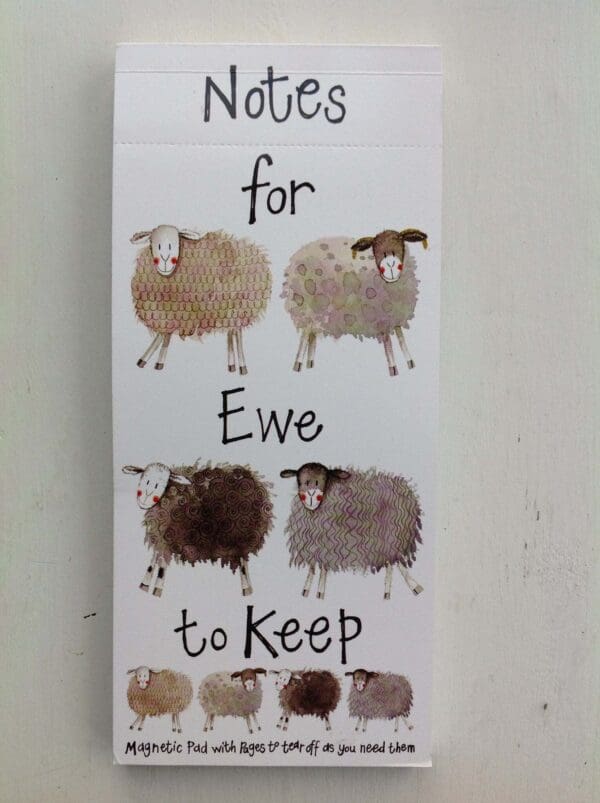 Notes
for
Ewe
to Keep
Magnetic Pad with Pages to tear off as you need them